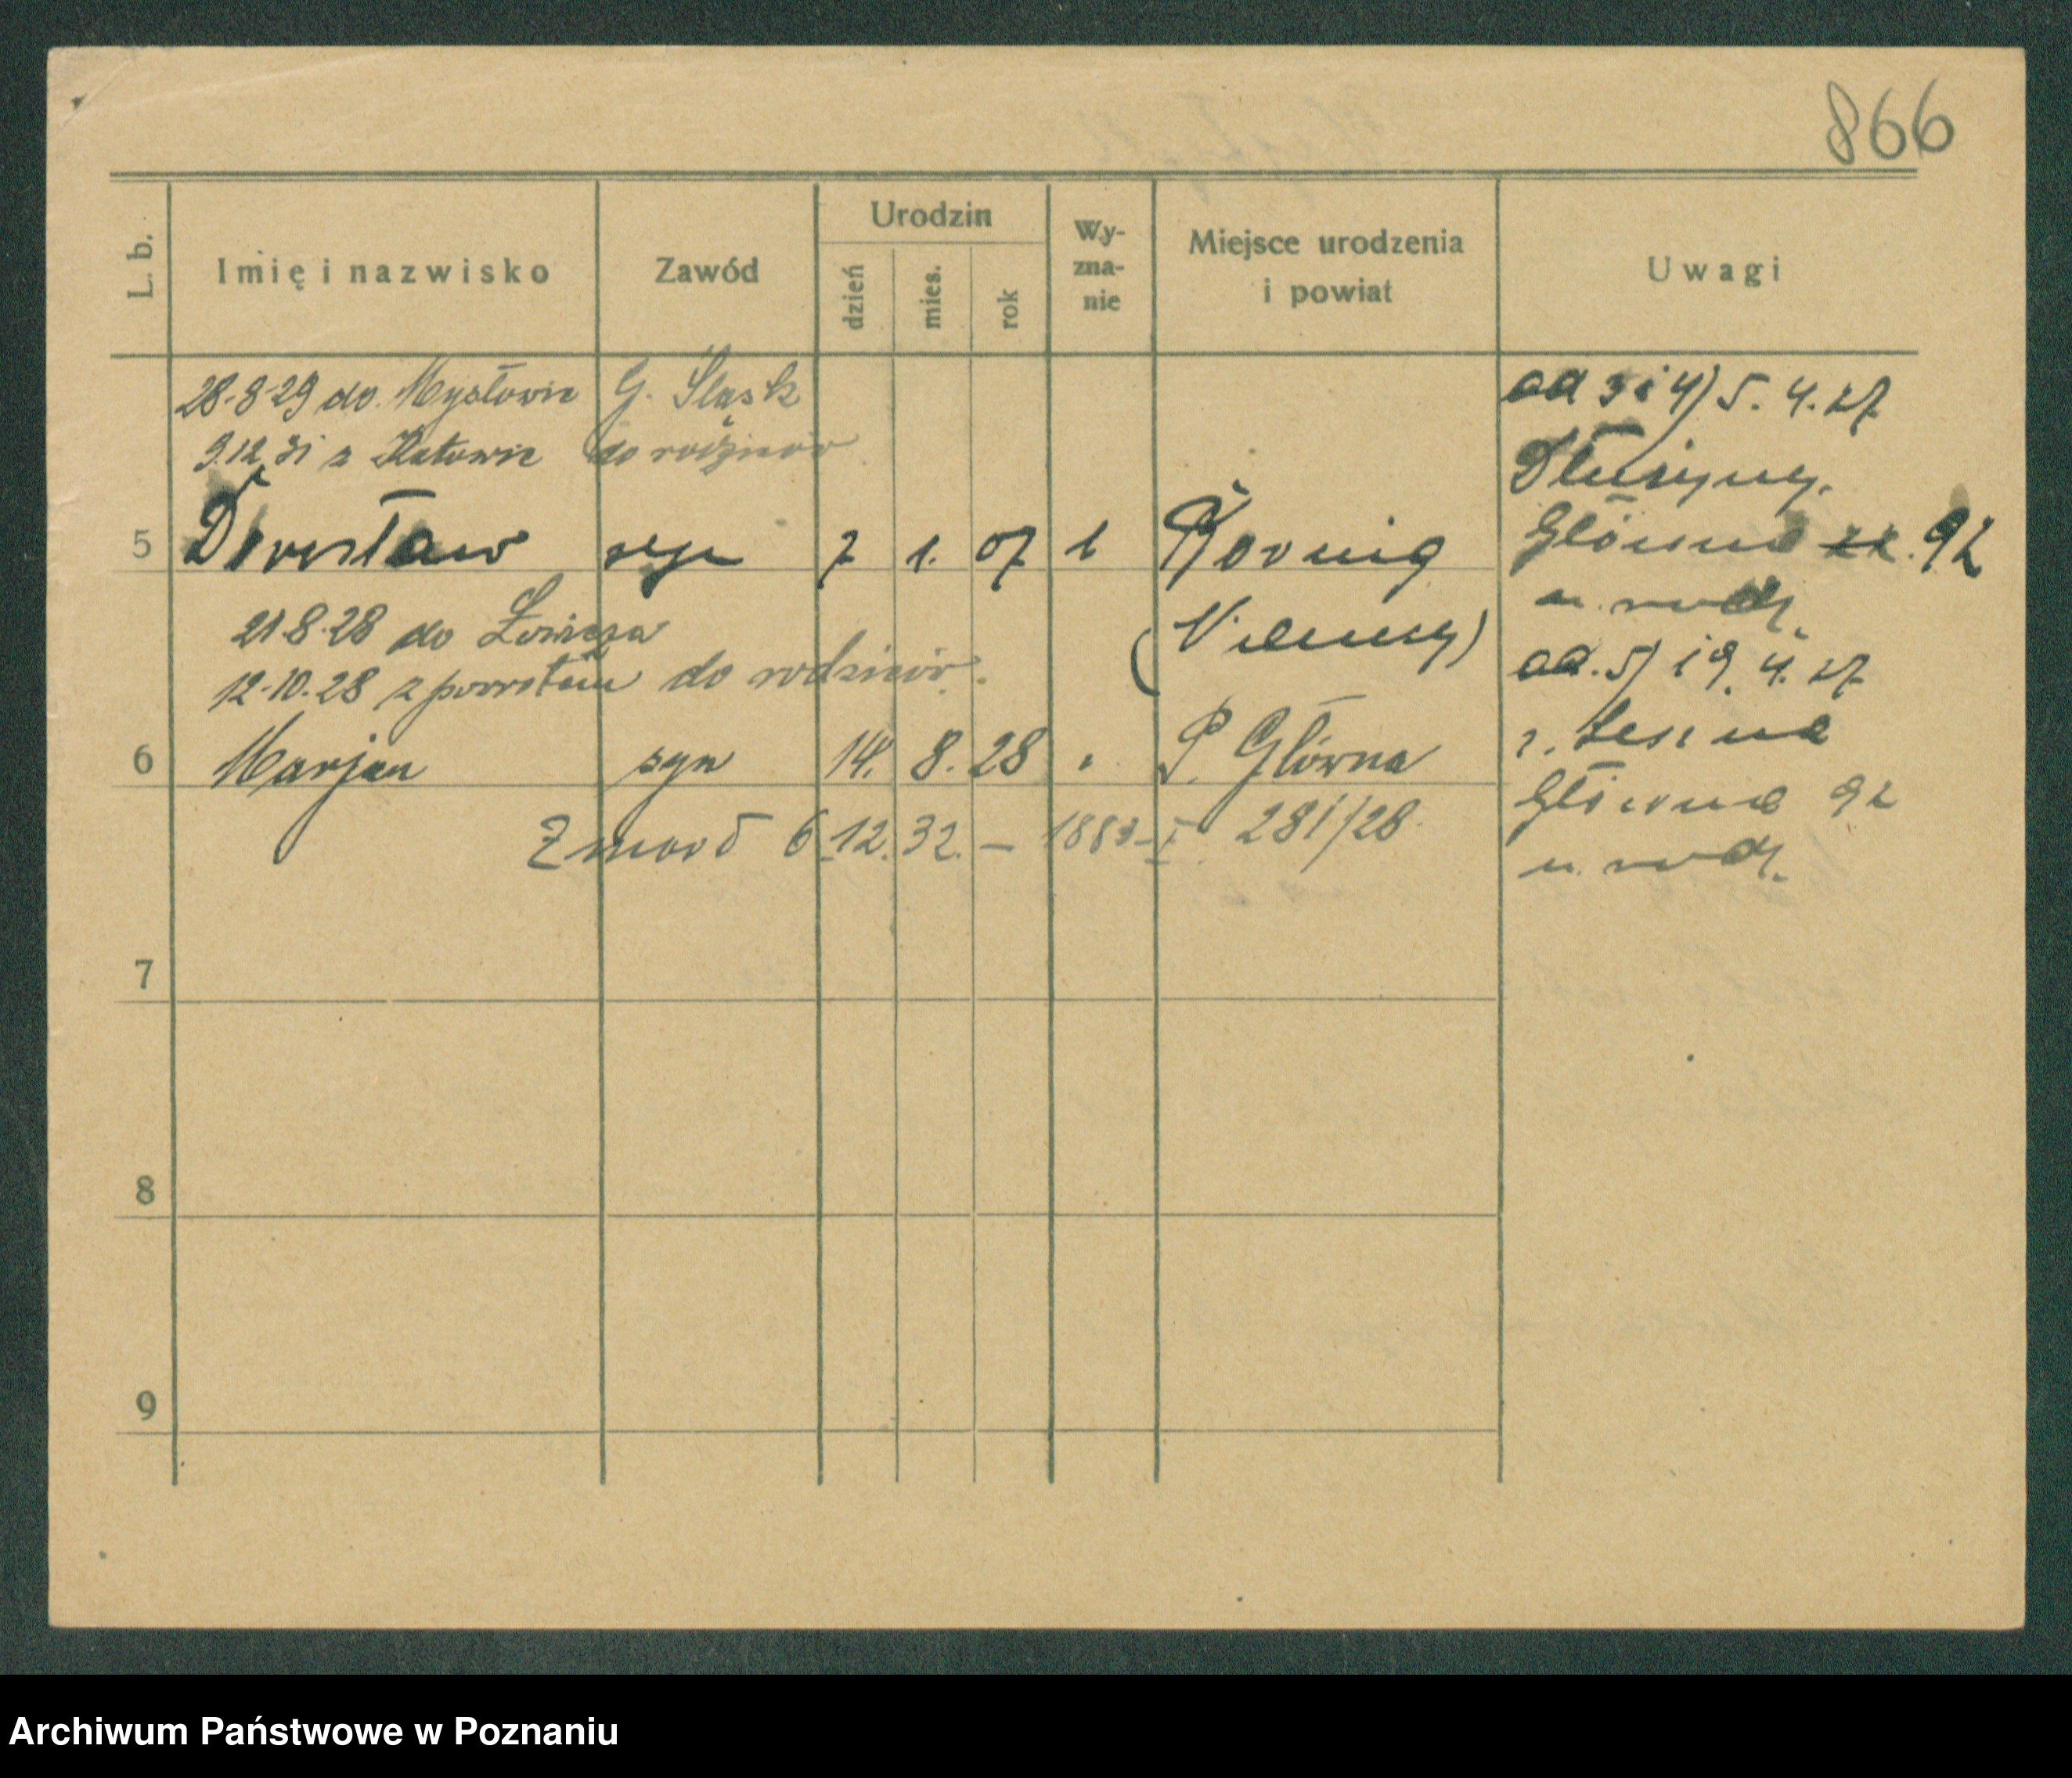 866
L. b.
Imię i nazwisko
Zawód
Urodzin
dzień
mies.
rok
Wy-
zna-
nie
Miejsce urodzenia
i powiat
Uwagi
28-8-29 do Mysłowic G. Śląsk
9.12.31 z Katowic do rodziców
5 syn 7 1. 07 1
21-8-28 do
12-10-28 z powrotem do rodziców
6 Marjan syn 14. 8. 28 " P. Główna
Zmarł 6.12.32. — 281/28
od 3 i 4) 5. 4. 27
Dłużyny.
Główna 92
u. rodz.
od. 5) 19. 4. 27
Główna 92
u. rodz.
7
8
9
Archiwum Państwowe w Poznaniu